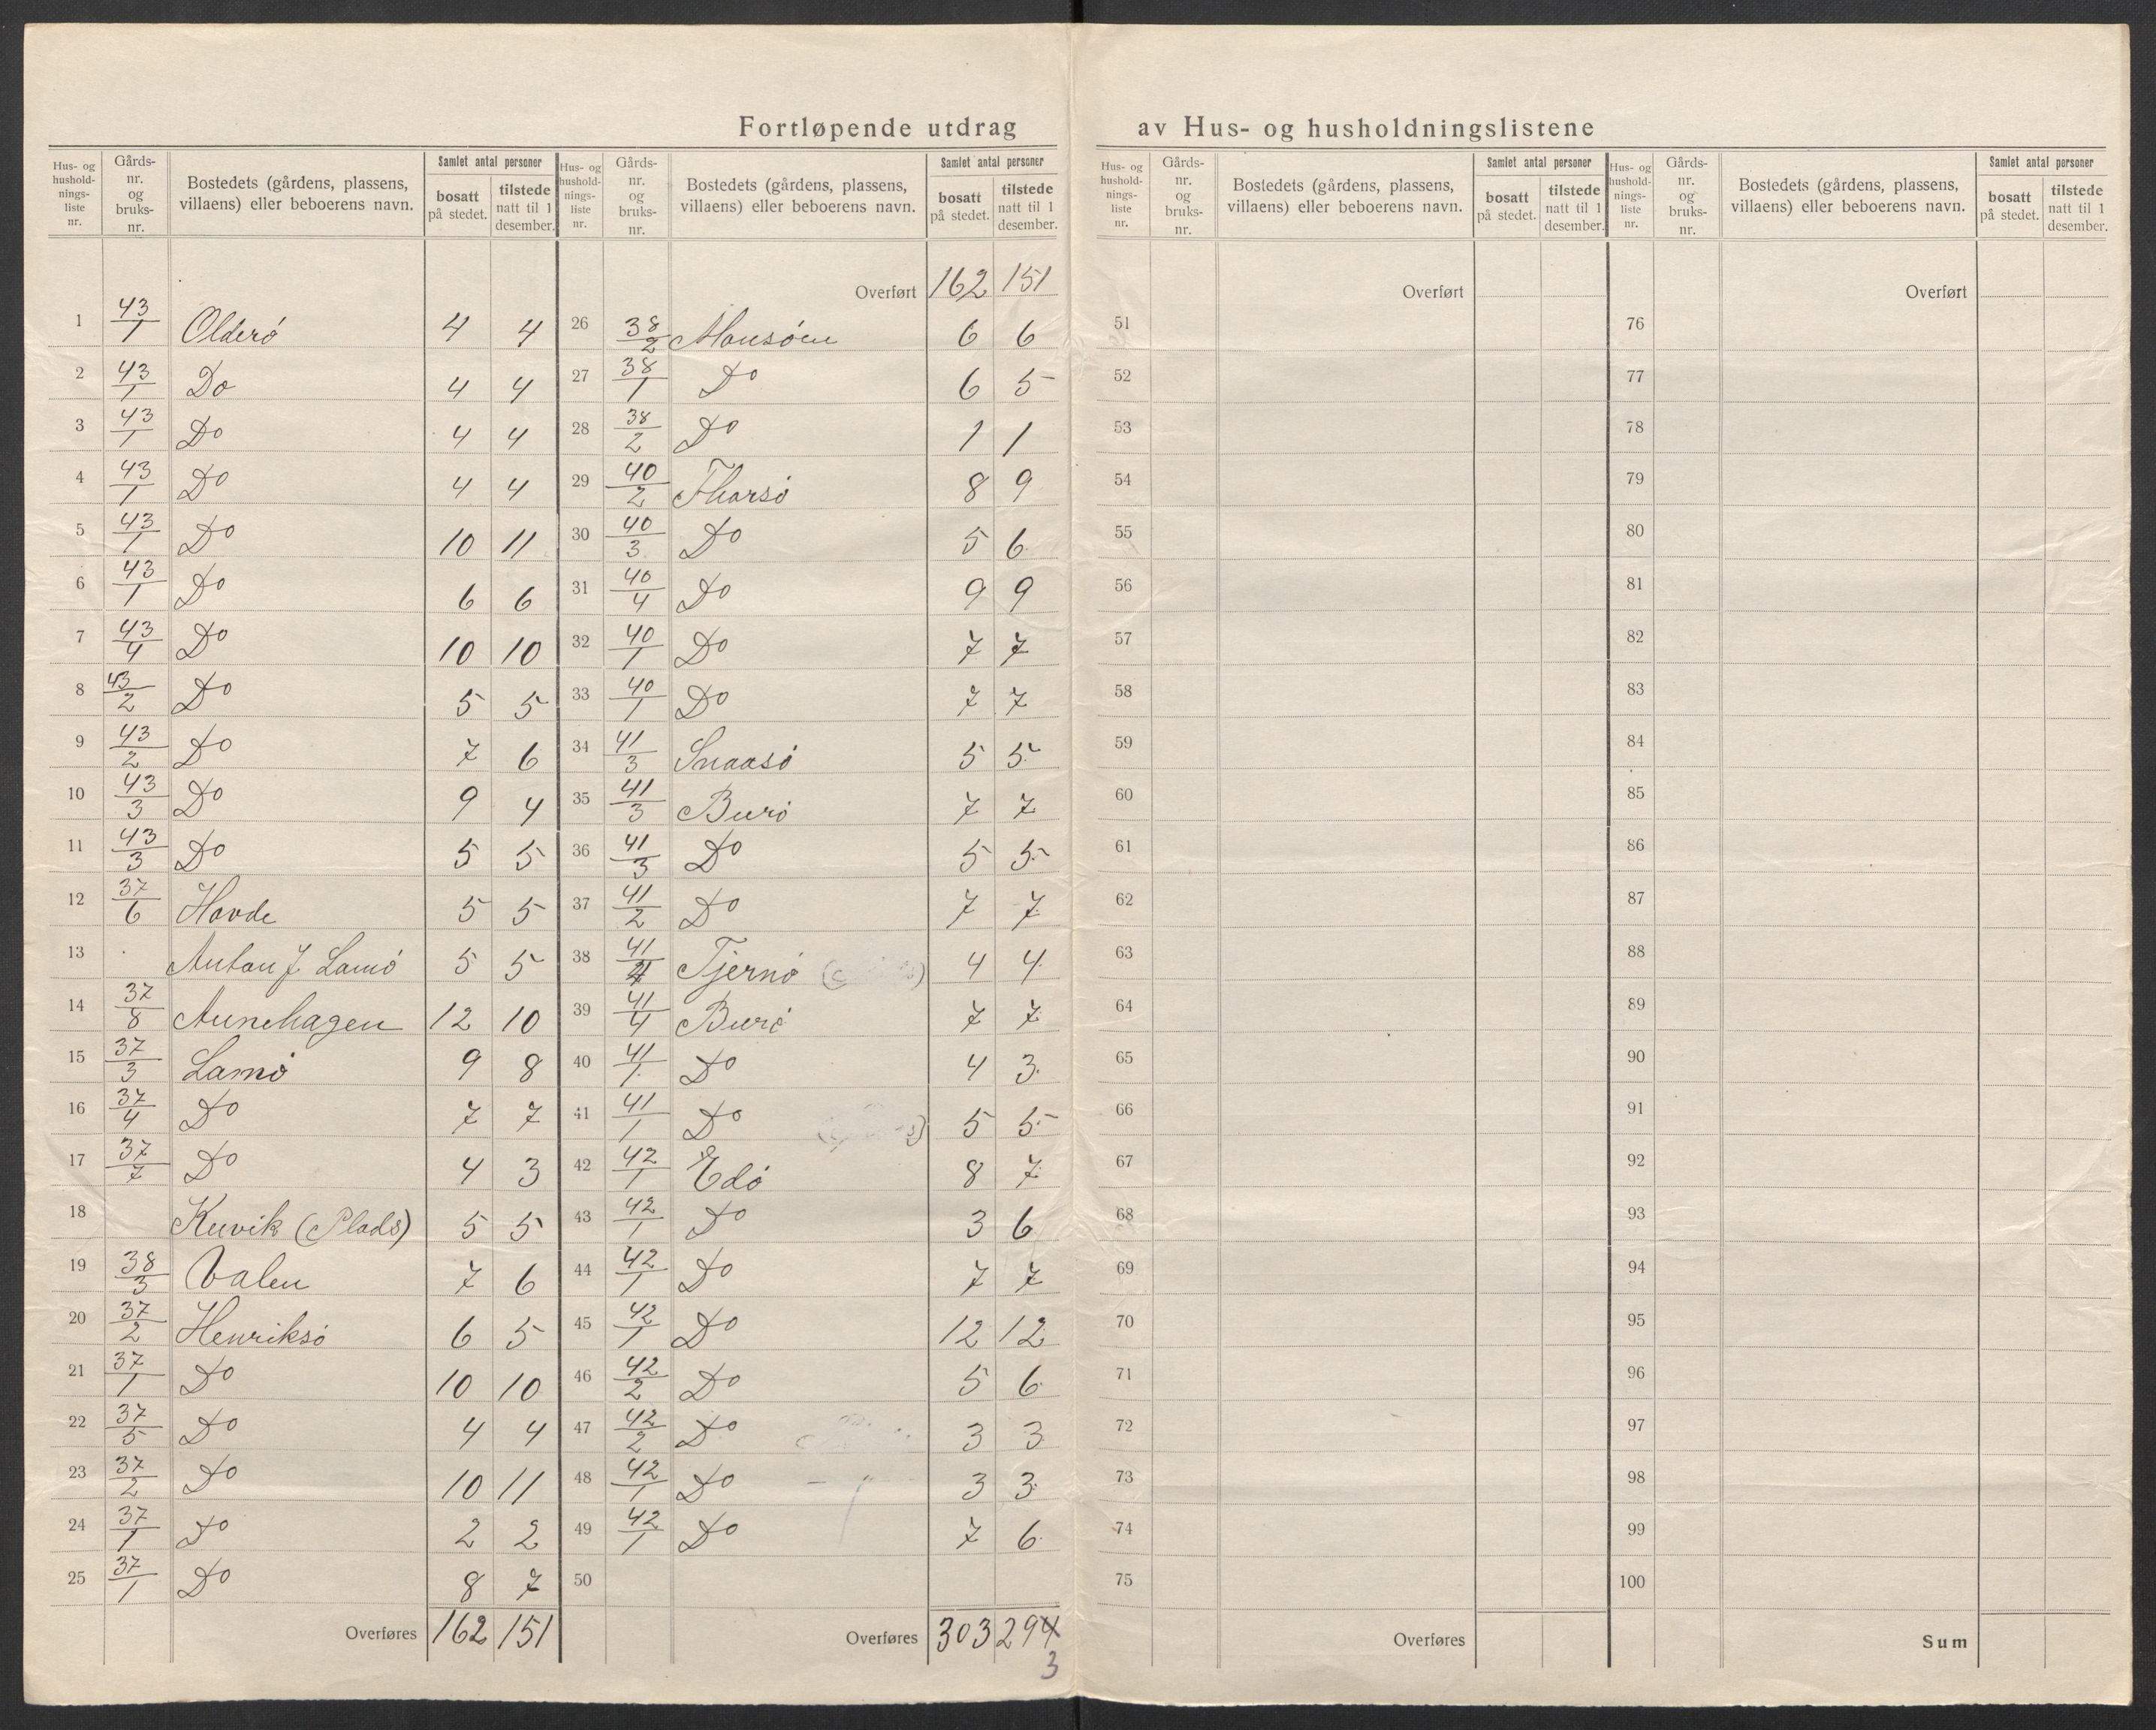 Fortløpende utdrag av Hus- og husholdningslistene
Hus- og husholdnings-liste nr. Gårds-nr. og bruks-nr. Bostedets (gårdens, plassens, villaens) eller beboerens navn. Samlet antal personer bosatt på stedet. tilstede natt til 1 desember.
1 43/1 Olderö 4 4
2 43/1 Do 4 4
3 43/1 Do 4 4
4 43/1 Do 4 4
5 43/1 Do 10 11
6 43/1 Do 6 6
7 43/4 Do 10 10
8 43/2 Do 5 5
9 43/2 Do 7 6
10 43/3 Do 9 4
11 43/3 Do 5 5
12 37/6 Havde 5 5
13 Anton J Lamö 5 5
14 37/8 Aunehagen 12 10
15 37/3 Lamö 9 8
16 37/4 Do 7 7
17 37/7 Do 4 3
18 Kuvik (Plads) 5 5
19 38/3 Valen 7 6
20 37/2 Henriksö 6 5
21 37/1 Do 10 10
22 37/5 Do 4 4
23 37/2 Do 10 11
24 37/1 Do 2 2
25 37/1 Do 8 7
Overføres 162 151
Hus- og husholdnings-liste nr. Gårds-nr. og bruks-nr. Bostedets (gårdens, plassens, villaens) eller beboerens navn. Samlet antal personer bosatt på stedet. tilstede natt til 1 desember.
Overført 162 151
26 38/2 Mausöen 6 6
27 38/1 Do 6 5
28 38/2 Do 1 1
29 40/2 Tharsö 8 9
30 40/3 Do 5 6
31 40/4 Do 9 9
32 40/1 Do 7 7
33 40/1 Do 7 7
34 41/3 Snaasö 5 5
35 41/3 Burö 7 7
36 41/3 Do 5 5
37 41/2 Do 7 7
38 41/4 Tjernö 4 4
39 41/4 Burö 7 7
40 41/1 Do 4 3
41 41/1 Do 5 5
42 42/1 Edö 8 7
43 42/1 Do 3 6
44 42/1 Do 7 7
45 42/1 Do 12 12
46 42/2 Do 5 6
47 42/2 Do 3 3
48 42/1 Do 3 3
49 42/1 Do 7 6
50
Overføres 303 294
3
Hus- og husholdnings-liste nr. Gårds-nr. og bruks-nr. Bostedets (gårdens, plassens, villaens) eller beboerens navn. Samlet antal personer bosatt på stedet. tilstede natt til 1 desember.
Overført
51
52
53
54
55
56
57
58
59
60
61
62
63
64
65
66
67
68
69
70
71
72
73
74
75
Overføres
Hus- og husholdnings-liste nr. Gårds-nr. og bruks-nr. Bostedets (gårdens, plassens, villaens) eller beboerens navn. Samlet antal personer bosatt på stedet. tilstede natt til 1 desember.
Overført
76
77
78
79
80
81
82
83
84
85
86
87
88
89
90
91
92
93
94
95
96
97
98
99
100
Sum